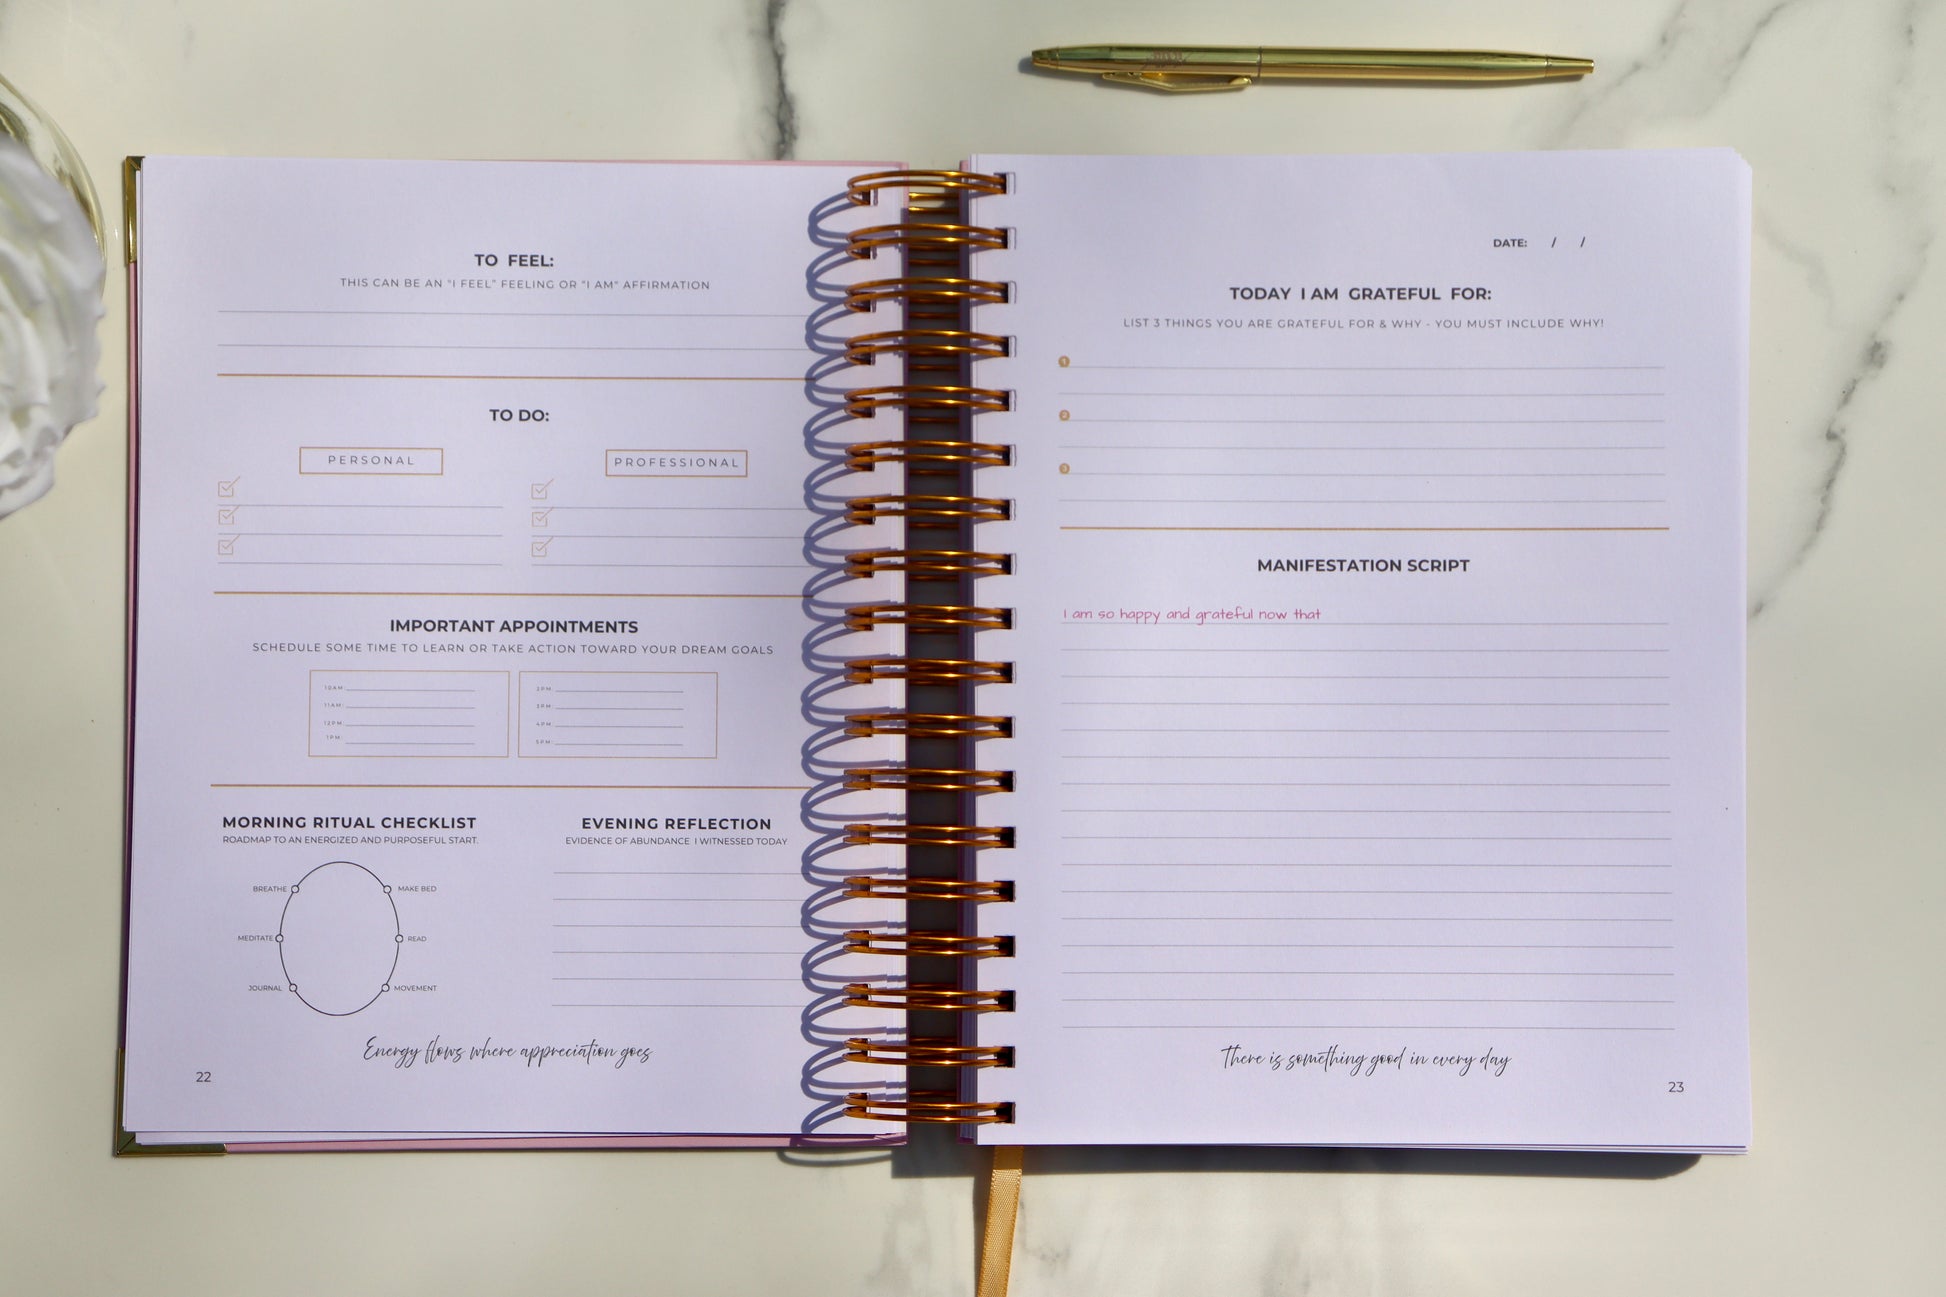 TO FEEL:
THIS CAN BE AN "I FEEL" FEELING OR "I AM" AFFIRMATION
TO DO:
PERSONAL
PROFESSIONAL
IMPORTANT APPOINTMENTS
SCHEDULE SOME TIME TO LEARN OR TAKE ACTION TOWARD YOUR DREAM GOALS
10AM:
11AM:
12PM:
1PM:
2PM:
3PM:
4PM:
5PM:
MORNING RITUAL CHECKLIST
ROADMAP TO AN ENERGIZED AND PURPOSEFUL START.
BREATHE
MAKE BED
MEDITATE
READ
JOURNAL
MOVEMENT
EVENING REFLECTION
EVIDENCE OF ABUNDANCE I WITNESSED TODAY
Energy flows where appreciation goes
22
DATE: / /
TODAY I AM GRATEFUL FOR:
LIST 3 THINGS YOU ARE GRATEFUL FOR & WHY - YOU MUST INCLUDE WHY!
1
2
3
MANIFESTATION SCRIPT
I am so happy and grateful now that
There is something good in every day
23